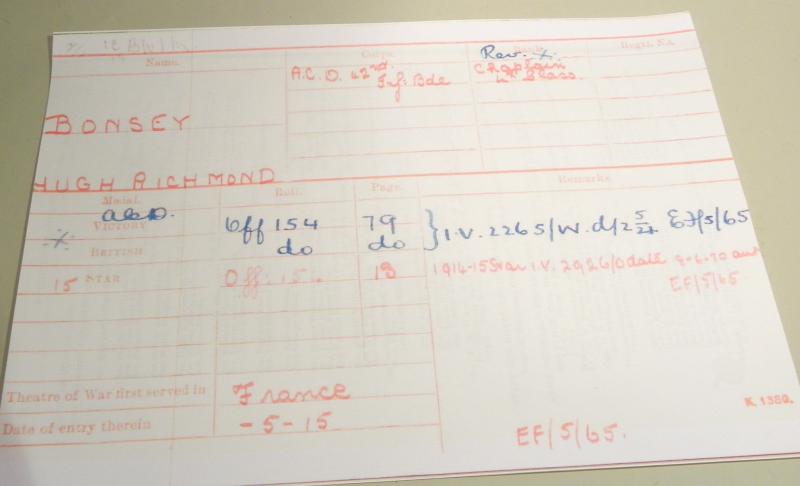 Name. Corps. Rank. Regtl. No.
Rev. X.
A.C.D. 42nd. Chaplain
Inf: Bde 4th Class.
BONSEY
HUGH RICHMOND
Medal. Roll. Page. Remarks
VICTORY Off 154 79 } I.V. 2265/W. d/2 5/21 EF/5/65
X do do
BRITISH
15 STAR Off: 15 13 1914-15 Star I.V. 2926/0 date
EF/5/65
Theatre of War first served in France
Date of entry therein -5-15
K. 1380.
EF/5/65.